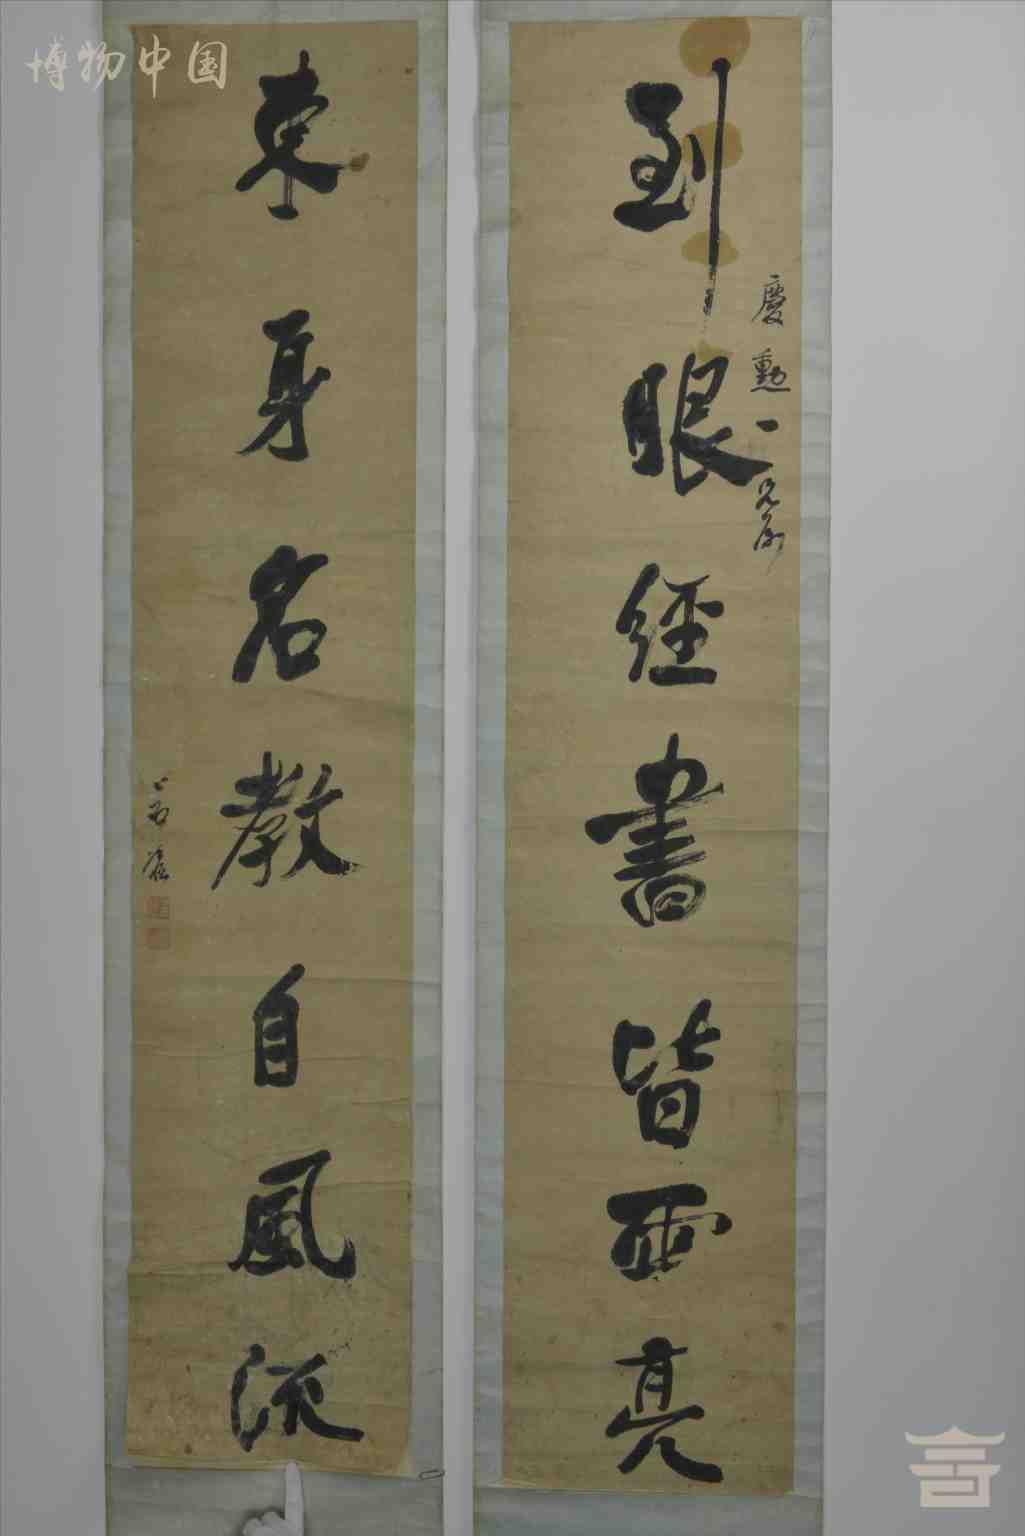 博物中国
到眼經書皆雪亮
慶勳一兄屬
束身名教自風流